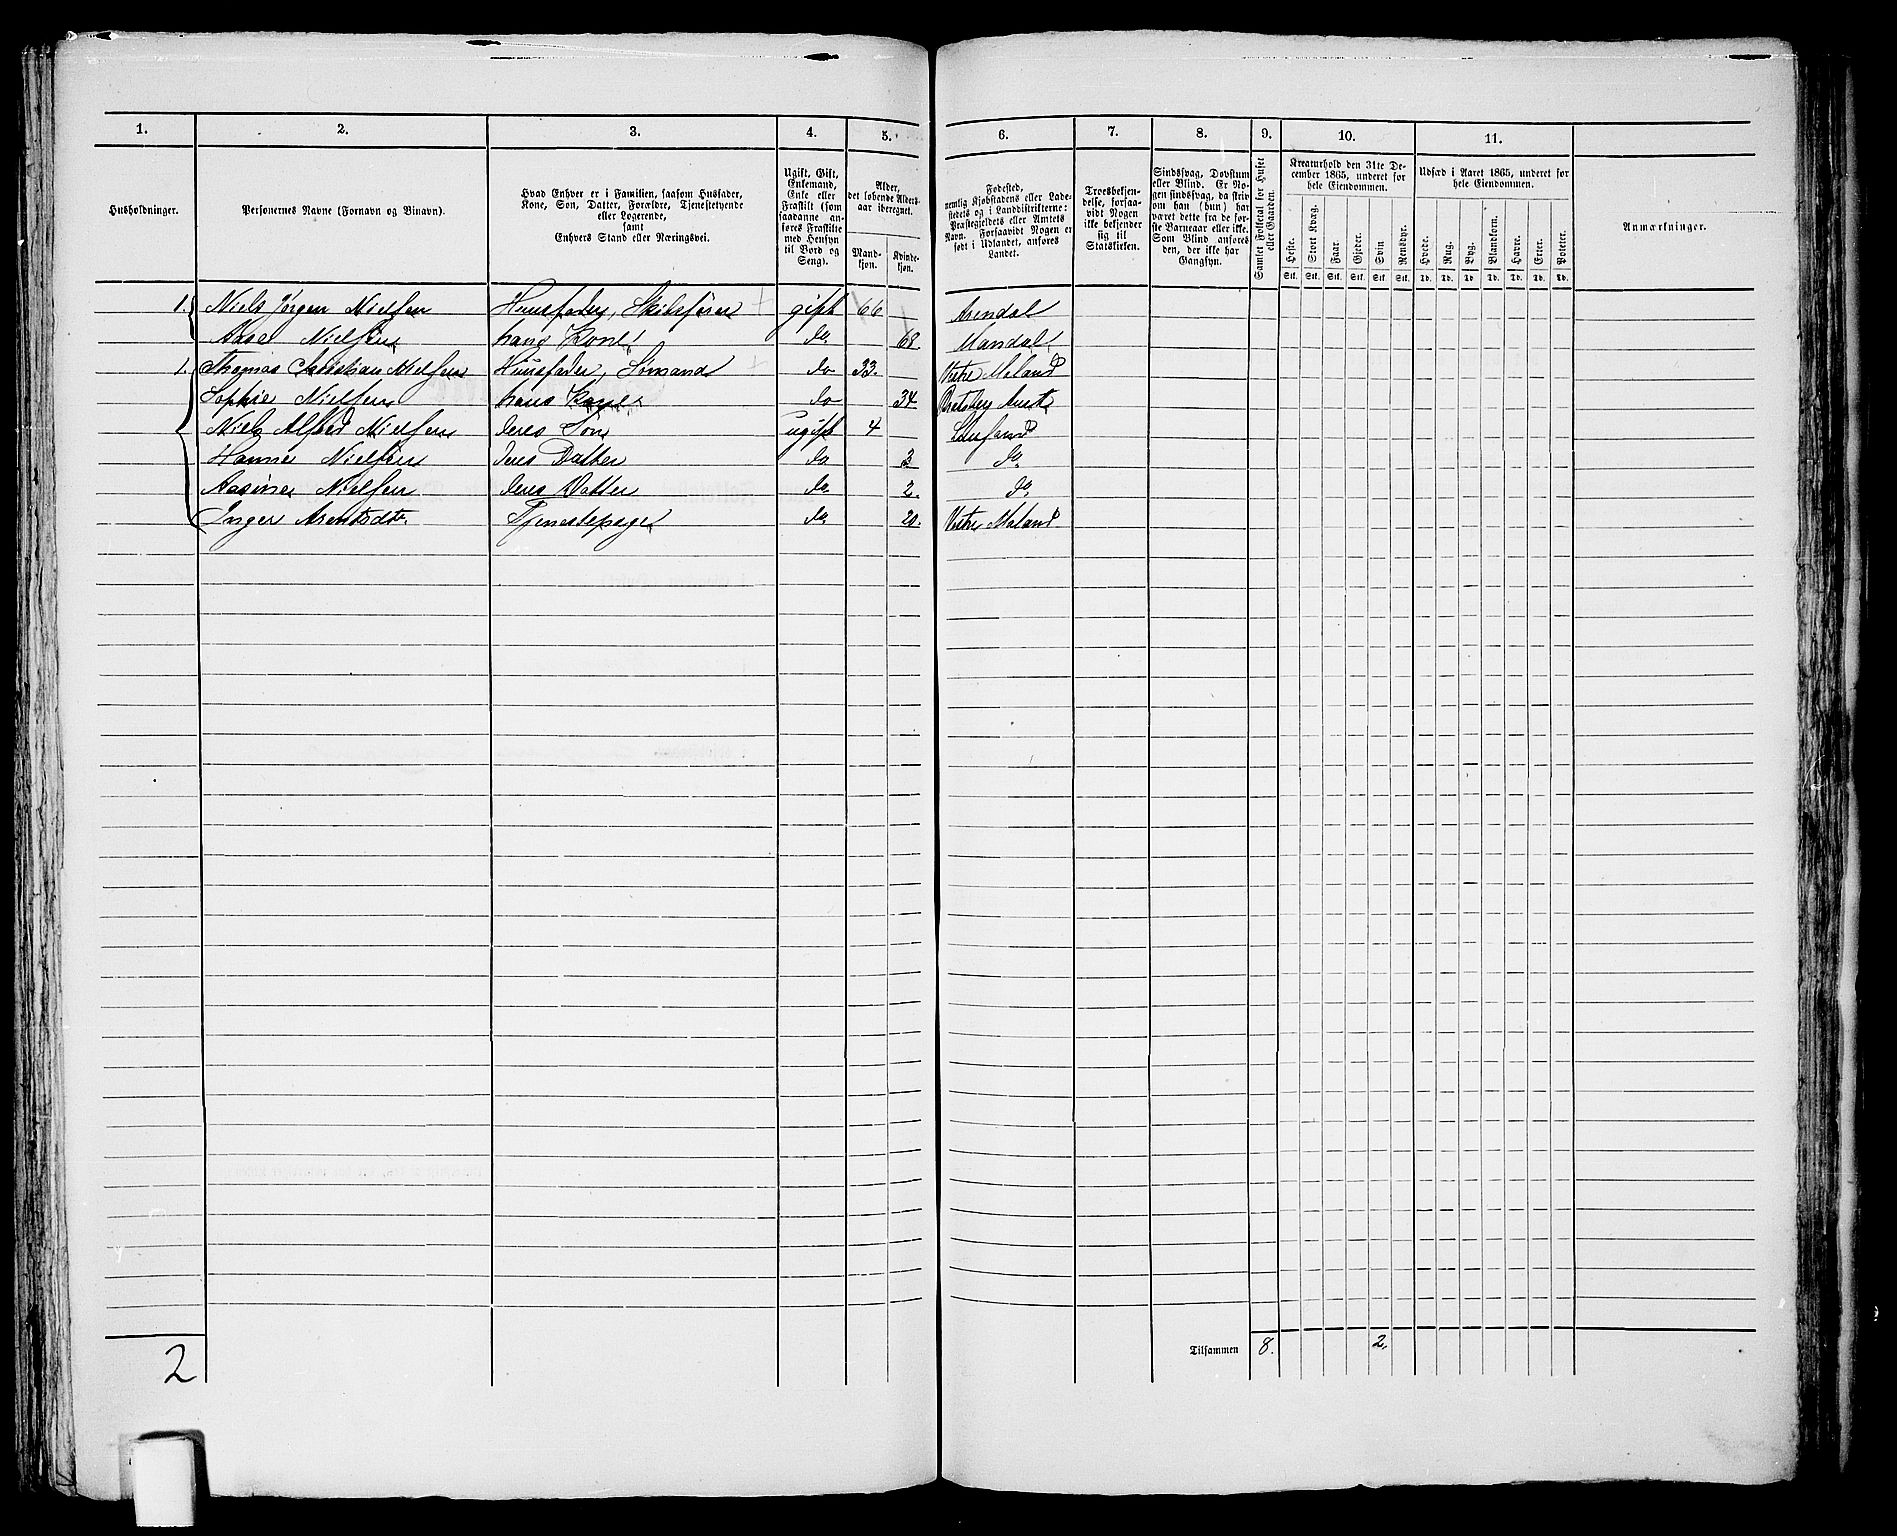 1. 2. 3. 4. 5. 6. 7. 8. 9. 10. 11.
Husholdninger.
Personernes Navne (Fornavn og Binavn).
Hvad Enhver er i Familien, saasom Husfader,
Kone, Søn, Datter, Forældre, Tjenestetyende
eller Logerende,
samt
Enhvers Stand eller Næringsvei.
Ugift, Gift,
Enkemand,
Enke eller
Fraskilt (som
saadanne an-
føres Fraskilte
med Hensyn
til Bord og
Seng).
Alder,
det løbende Alders-
aar iberegnet.
Mand-
kjøn.
Kvinde-
kjøn.
Fødested,
nemlig Kjøbstadens eller Lade-
stedets og i Landdistrikterne:
Præstegjeldets eller Amtets
Navn. Forsaavidt Nogen er
født i Udlandet, anføres
Landet.
Troesbekjen-
delse, forsaa-
vidt Nogen
ikke bekjender
sig til
Statskirken.
Sindssvag, Døvstum
eller Blind. Er No-
gen sindssvag, da skriv
om han (hun) har
været dette fra de før-
ste Barneaar eller ikke.
Som Blind anføres
den, der ikke har
Gangsyn.
Samlet Folketal for Huset
eller Gaarden.
Kreaturhold den 31te De-
cember 1865, underet for
hele Eiendommen.
Heste.
Stort Kvæg.
Faar.
Gjeder.
Svin
Rensdyr.
Stk. Stk. Stk. Stk. Stk. Stk.
Udsæd i Aaret 1865, underet for
hele Eiendommen.
Hvede.
Rug.
Byg.
Blandkorn.
Havre.
Erter.
Poteter.
Td. Td. Td. Td. Td. Td. Td.
Anmærkninger.
1. Niels Jørgen Nielsen Huusfader, gift 66 Arendal
Aase Nielsen hans Kone do 68. Mandal
1. Thomas Christian Nielsen Huusfader, Sømand do 33. Vestre Moland
Sophie Nielsen hans Kone do 34 Bratsberg Amt
Niels Alfred Nielsen deres Søn ugift 4
Hanne Nielsen deres Datter do 3 do
Aasine Nielsen deres Datter do. 2. do
Inger Arentsdtr. Tjenestepige do. 20. Vestre Moland
Tilsammen 8. 2.
2